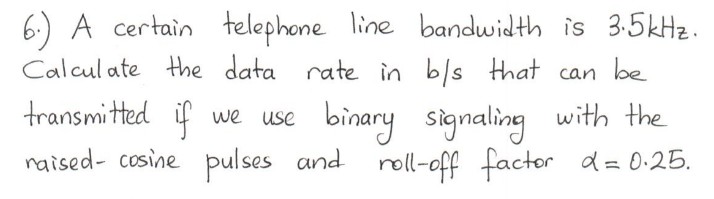 6.) A certain telephone line bandwidth is 3.5kHz.
Calculate the data rate in b/s that can be
transmitted if we use binary signaling with the
raised-cosine pulses and roll-off factor α = 0.25.